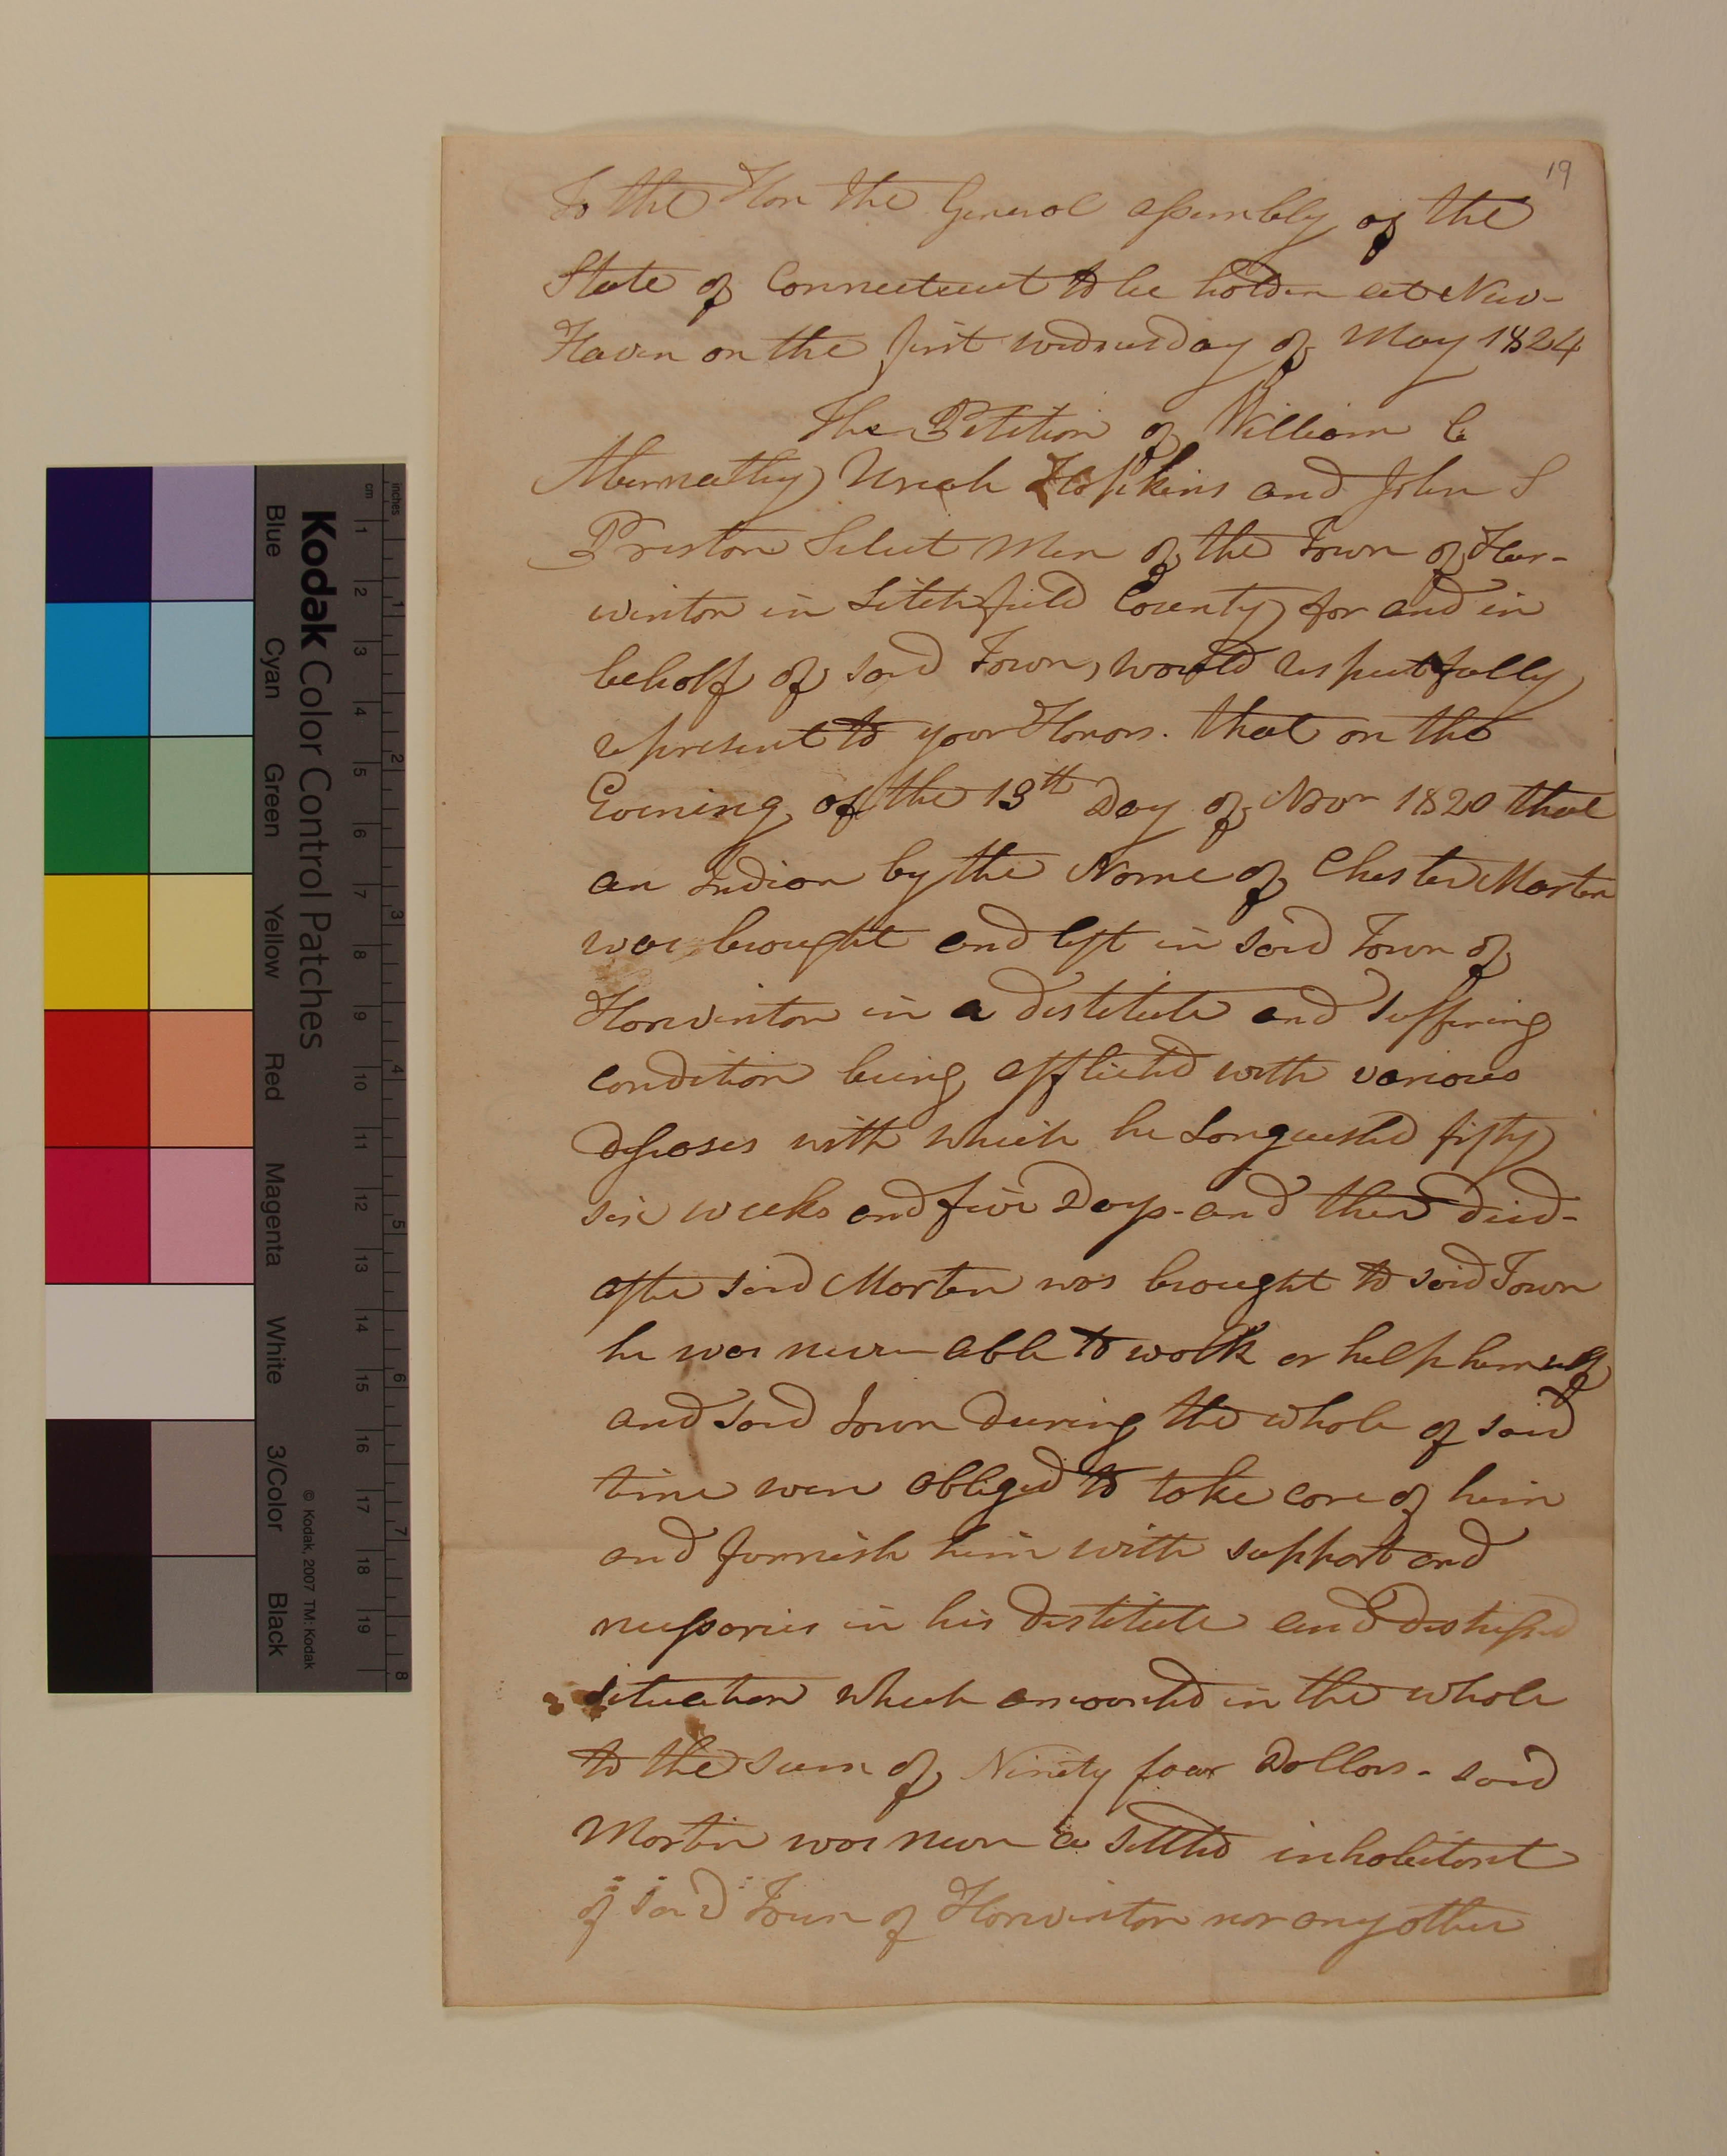 19
To the Hon the General assembly of the
State of Connecticut to be holden at New-
Haven on the first wednesday of May 1824
The Petition of William C
Abernathy Uriah Hopkins and John S
Preston Select Men of the Town of Har-
winton in Litchfield County for and in
behalf of said Town, would respectfully
represent to your Honors. that on the
Evening of the 13th Day of Novr 1820 that
an Indian by the Name of Chester Marten
was brought and left in said Town of
Harwinton in a destitute and suffering
condition being afflicted with various
deseases with which he Languished fifty
six weeks and five Days - and then died -
after said Marten was brought to said Town
he was never able to walk or help himself
and said Town during the whole of said
time were obliged to take care of him
and furnish him with support and
necessaries in his destitute and distressed
situation which amounted in the whole
to the sum of Ninety four Dollars - said
Martin was never a settled inhabitant
of said Town of Harwinton nor any other
inches
cm
1 2 3 4 5 6 7 8 9 10 11 12 13 14 15 16 17 18 19
1 2 3 4 5 6 7 8
Kodak Color Control Patches
© Kodak, 2007 TM: Kodak
Blue Cyan Green Yellow Red Magenta White 3/Color Black